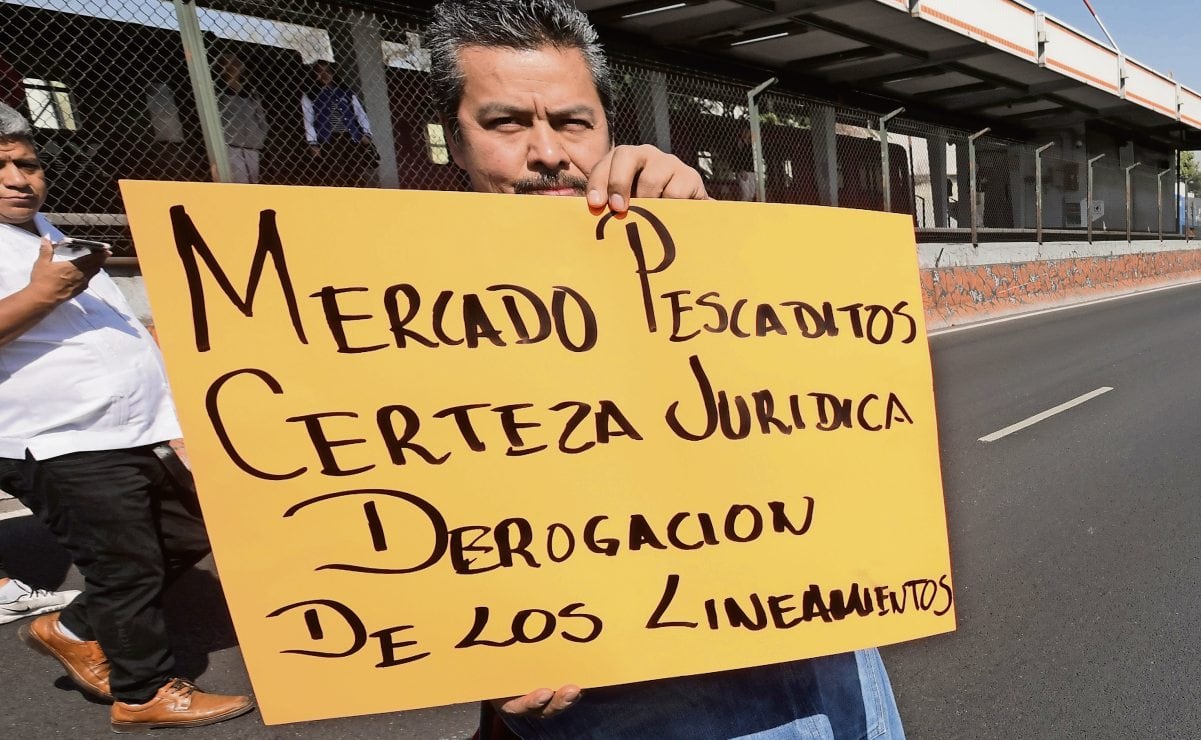 MERCADO PESCADITOS
CERTEZA JURIDICA
DEROGACION
DE LOS LINEAMIENTOS